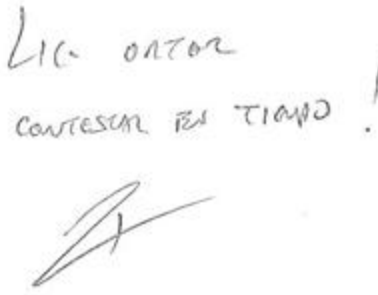 Lic. ORTOR
CONTESTAR EN TIEMPO!